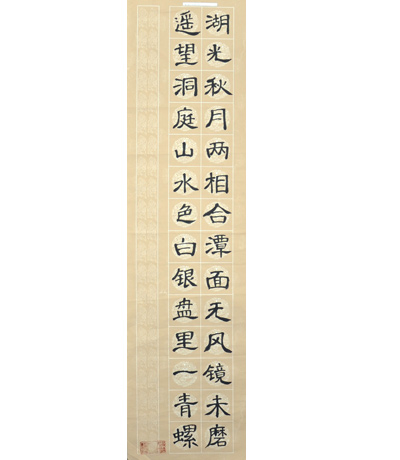 湖光秋月两相合潭面无风镜未磨
遥望洞庭山水色白银盘里一青螺